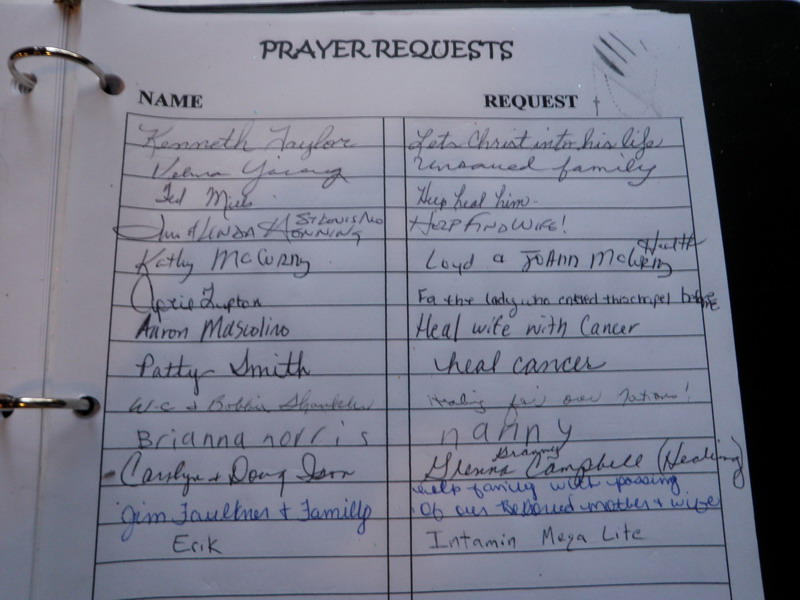 PRAYER REQUESTS
NAME REQUEST
Kenneth Taylor Lets Christ into his life
Velma Young Unsaved family
Ted Help heal him.
St Louis Mo
Jim & LINDA HONNING HELP FIND WIFE!
Health
Kathy McCurry Loyd & JoAnn McCurry
Lupton For the lady who entered this chapel before me
Aaron Mascolino Heal wife with Cancer
Patty Smith heal cancer
W.C & Bobbie Healing for our Nation!
Brianna norris nanny
Granny
Carolyn & Doug Ison Glenna Campbell (Healing)
help family with passing
Jim Faulkner & Family Of our Beloved mother & wife
Erik Intamin Mega Lite